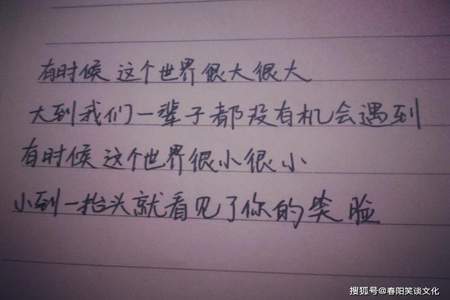 有时候 这个世界很大很大
大到我们一辈子都没有机会遇到
有时候这个世界很小很小
小到一抬头就看见了你的笑脸
搜狐号@春阳笑谈文化